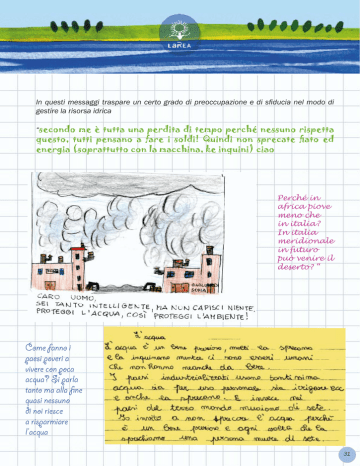 LABREA
In questi messaggi traspare un certo grado di preoccupazione e di sfiducia nel modo di
gestire la risorsa idrica
"secondo me è tutta una perdita di tempo perché nessuno rispetta
questo, tutti pensano a fare i soldi! Quindi non sprecate fiato ed
energia (soprattutto con la macchina, ke inquini) ciao
Perché in
africa piove
meno che
in italia?
In italia
meridionale
in futuro
può venire il
deserto? "
CARO UOMO,
SEI TANTO INTELLIGENTE, MA NON CAPISCI NIENTE.
PROTEGGI L'ACQUA, COSÌ PROTEGGI L'AMBIENTE!
Come fanno i
paesi poveri a
vivere con poca
acqua? Si parla
tanto ma alla fine
quasi nessuno
di noi riesce
a risparmiare
l'acqua
L'acqua
L'acqua è un bene prezioso, molti la sprecano
e la inquinano mentre ci sono esseri umani
che non hanno neanche da bere.
I paesi industrializzati usano tantissima
acqua sia per uso personale sia irrigare ecc
e anche la sprecano. E invece nei
paesi del terzo mondo muoiono di sete.
Io invito a non sprecare l'acqua perché
è un bene prezioso e ogni volta che la
sprechiamo una persona muore di sete.
31